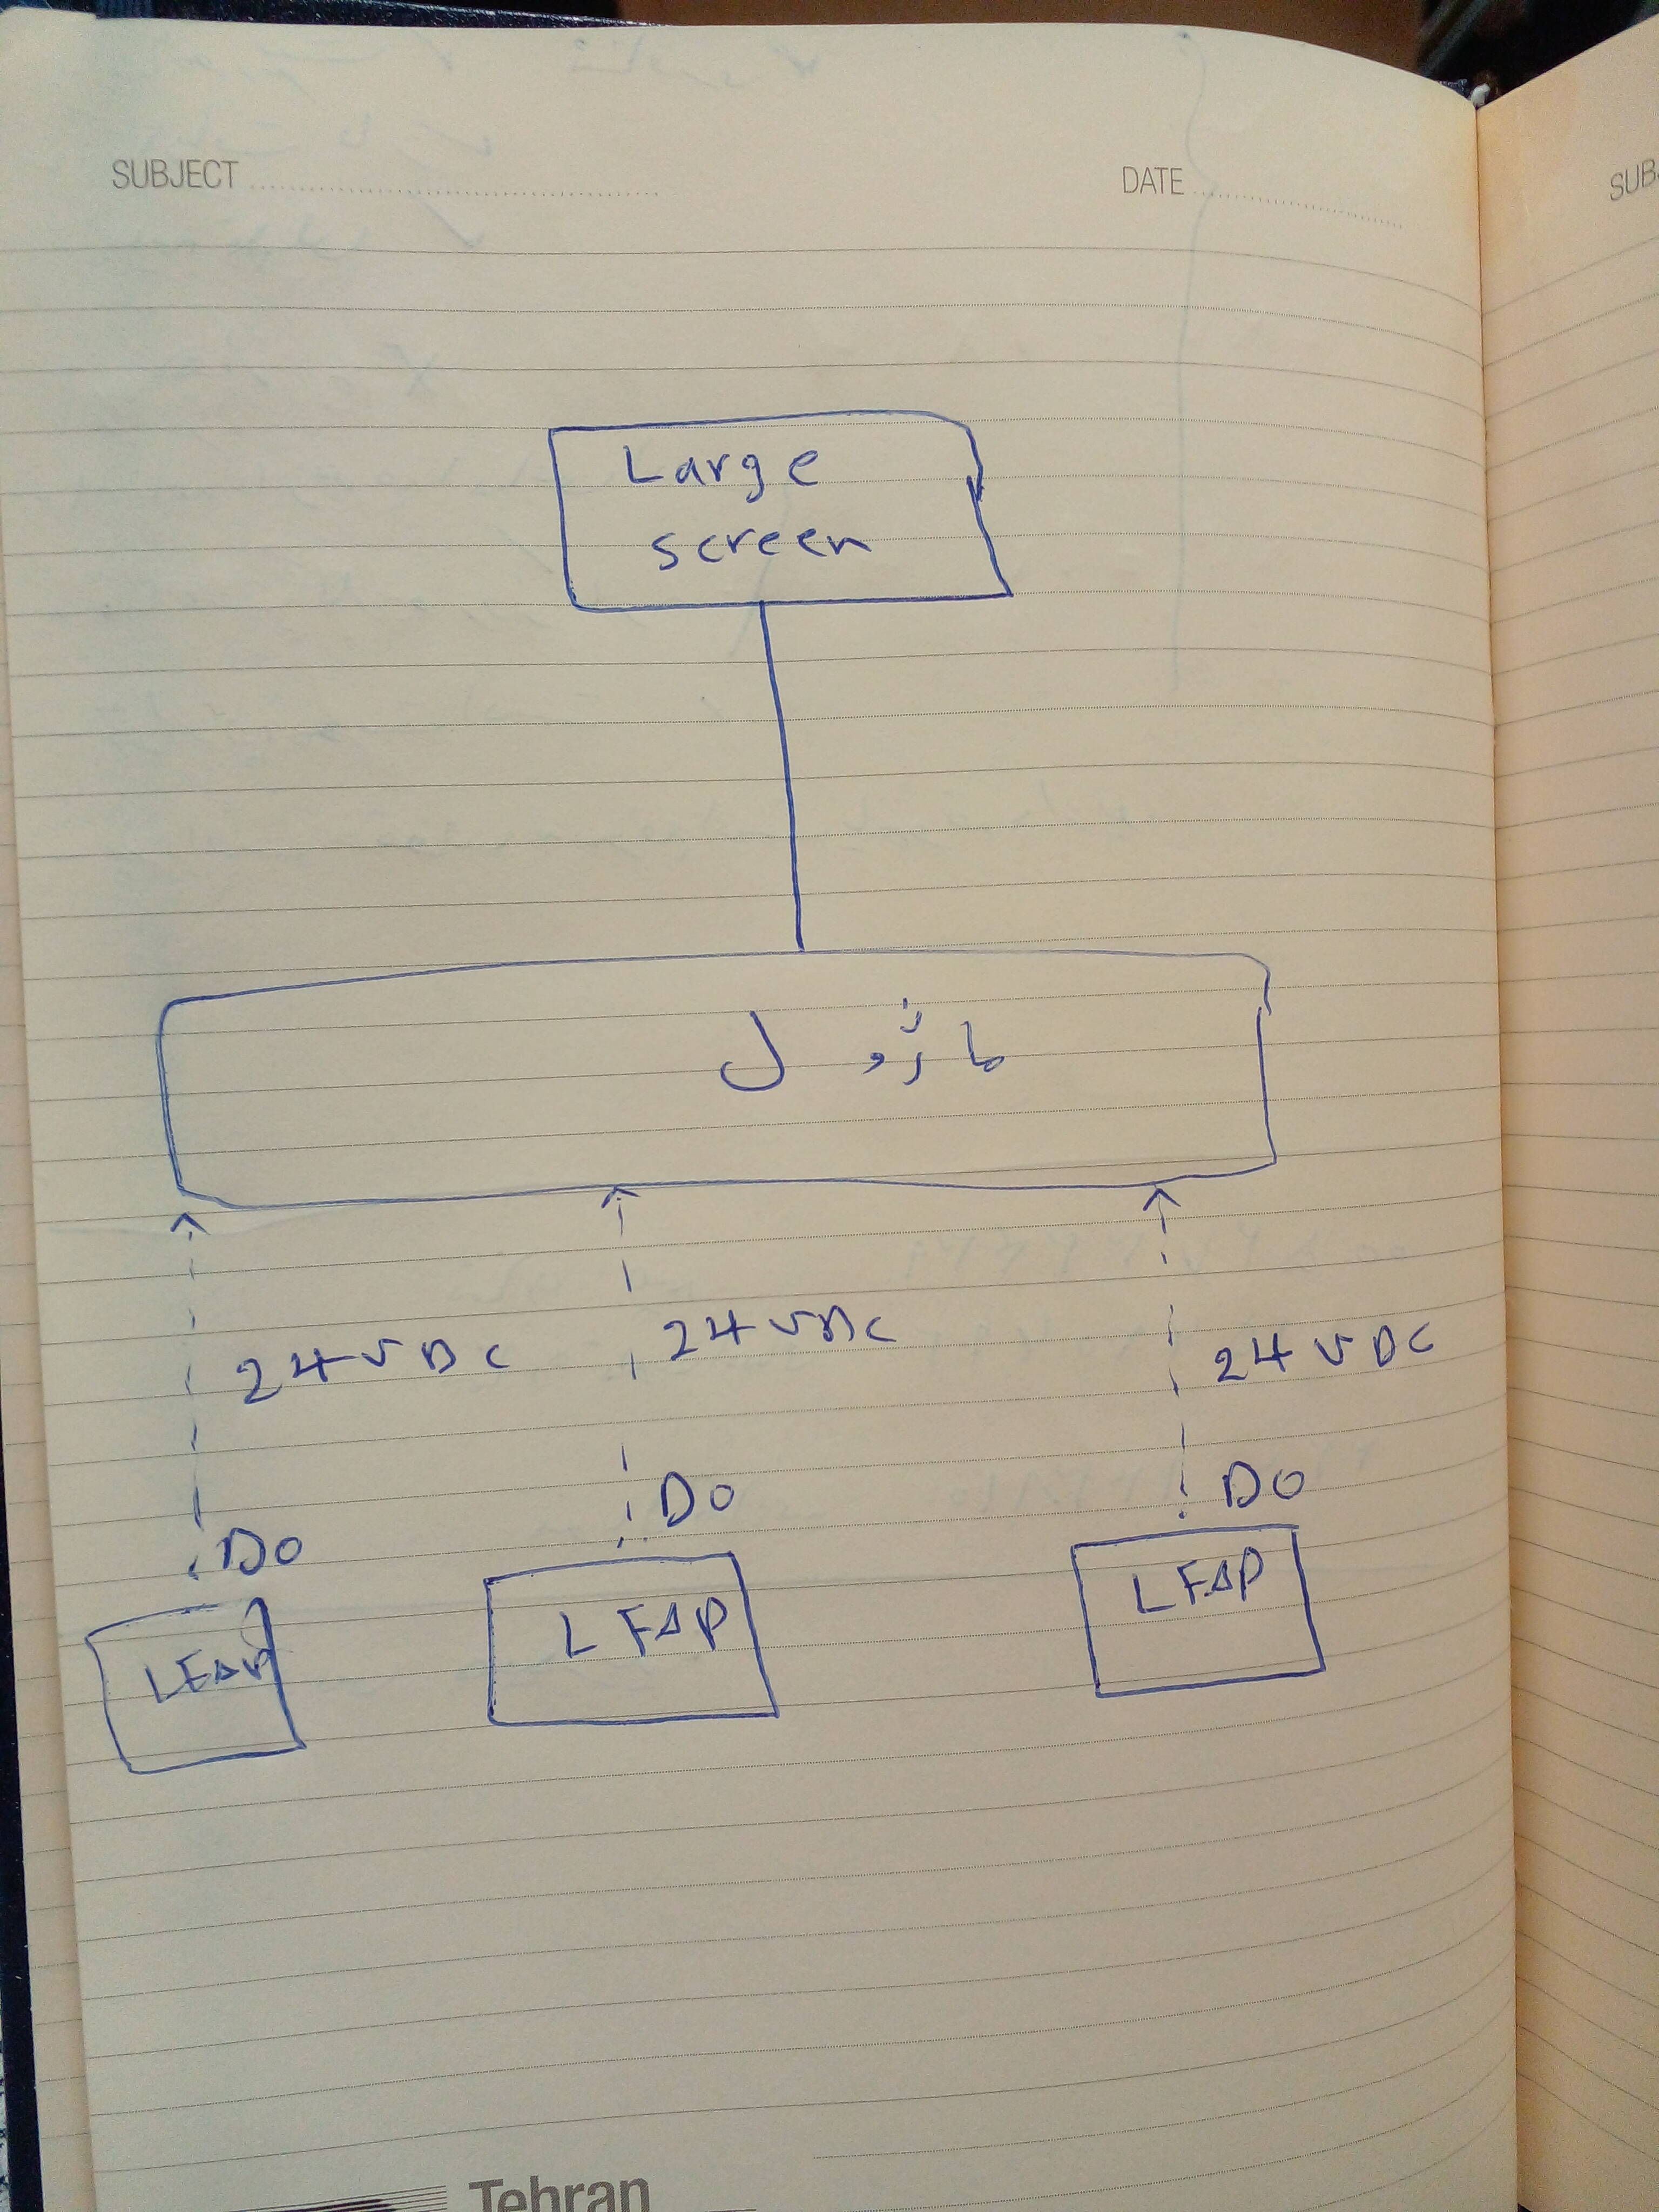 SUBJECT
DATE
Large
screen
ماژول
24 VDC
24 VDC
24 VDC
DO
DO
DO
LFAP
LFAP
LFAP
Tehran